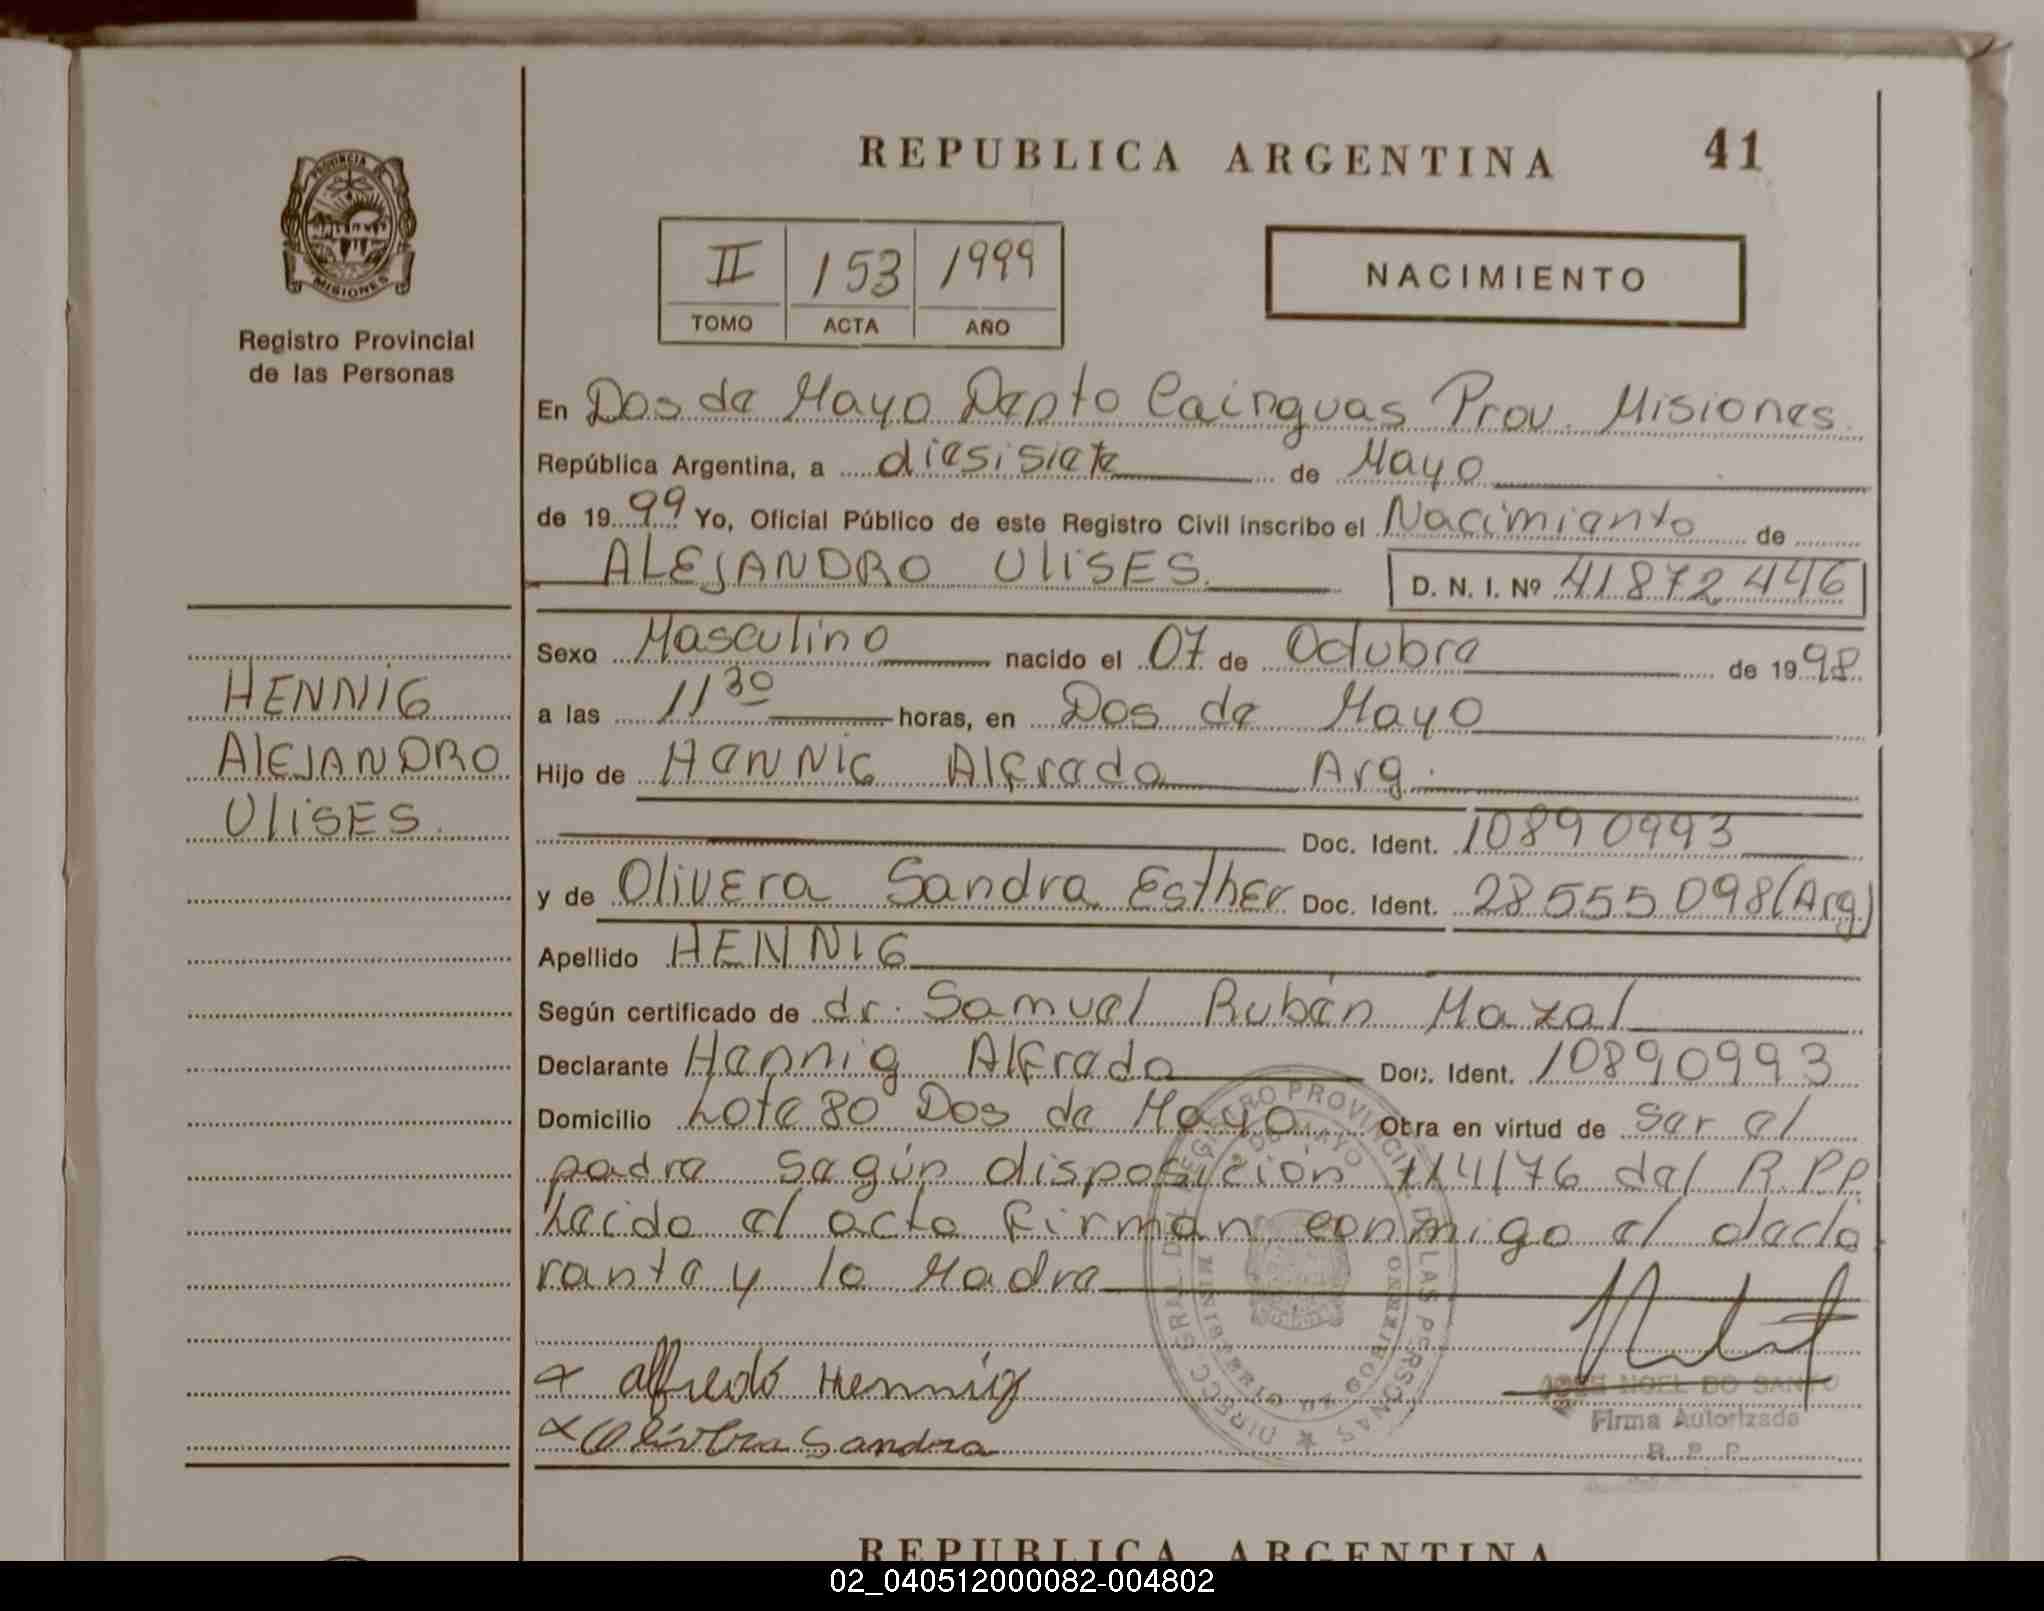 REPUBLICA ARGENTINA 41
PROVINCIA DE
MISIONES
Registro Provincial
de las Personas
II 153 1999
TOMO ACTA AÑO
NACIMIENTO
En Dos de Mayo Depto Cainguas Prov. Misiones.
República Argentina, a diesisiete de Mayo
de 1999 Yo, Oficial Público de este Registro Civil inscribo el Nacimiento de
ALEJANDRO ULISES D. N. I. Nº 41872446
Sexo Masculino nacido el 07 de Octubre de 1998
a las 11 30 horas, en Dos de Mayo
Hijo de HENNIG Alfredo Arg.
Doc. Ident. 10890993
y de Olivera Sandra Esther Doc. Ident. 28555098 (Arg)
Apellido HENNIG
Según certificado de dr. Samuel Rubén Mazal
Declarante Hennig Alfredo Doc. Ident. 10890993
Domicilio Lote 80 Dos de Mayo Obra en virtud de ser el
padre según disposición 114/76 del R.P.P.
Leido el acta firman conmigo el decla
rante y la Madre
HENNIG
ALEJANDRO
ULISES.
x alfredo Hennig
x Olivera Sandra
DIRECC. GRAL. DEL REGISTRO PROVINCIAL DE LAS PERSONAS
2 DE MAYO
MINISTERIO DE GOBIERNO
JOSE NOEL DO SANTO
Firma Autorizada
R. P. P.
REPUBLICA ARGENTINA
02_040512000082-004802